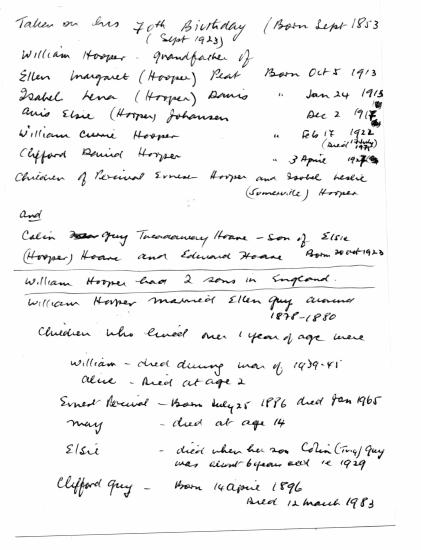 Taken on his 70th Birthday (Born Sept 1853
(Sept 1923)
William Hooper - grandfather of
Ellen Margaret (Hooper) Peat Born Oct 5 1913
Isabel Lena (Hooper) Davis " Jan 24 1915
Avis Elsie (Hooper) Johansen Dec 2 1917
William Currie Hooper " Feb 17 1922
(Died
Clifford David Hooper " 3 April
Children of Percival Ernest Hooper and Isobel Leslie
(Somerville) Hooper
and
Colin Guy Hoare - Son of Elsie
(Hooper) Hoare and Edward Hoare Born 20 Oct 1923
William Hooper had 2 sons in England.
William Hooper married Ellen Guy around
1878-1880
Children who lived over 1 year of age were
William - died during war of 1939-45
Alice - Died at age 2
Ernest Percival - Born July 25 1886 died Jan 1965
May - died at age 14
Elsie - died when her son Colin Guy
was about 6 years old ie 1929
Clifford Guy - Born 14 April 1896
Died 12 March 1983